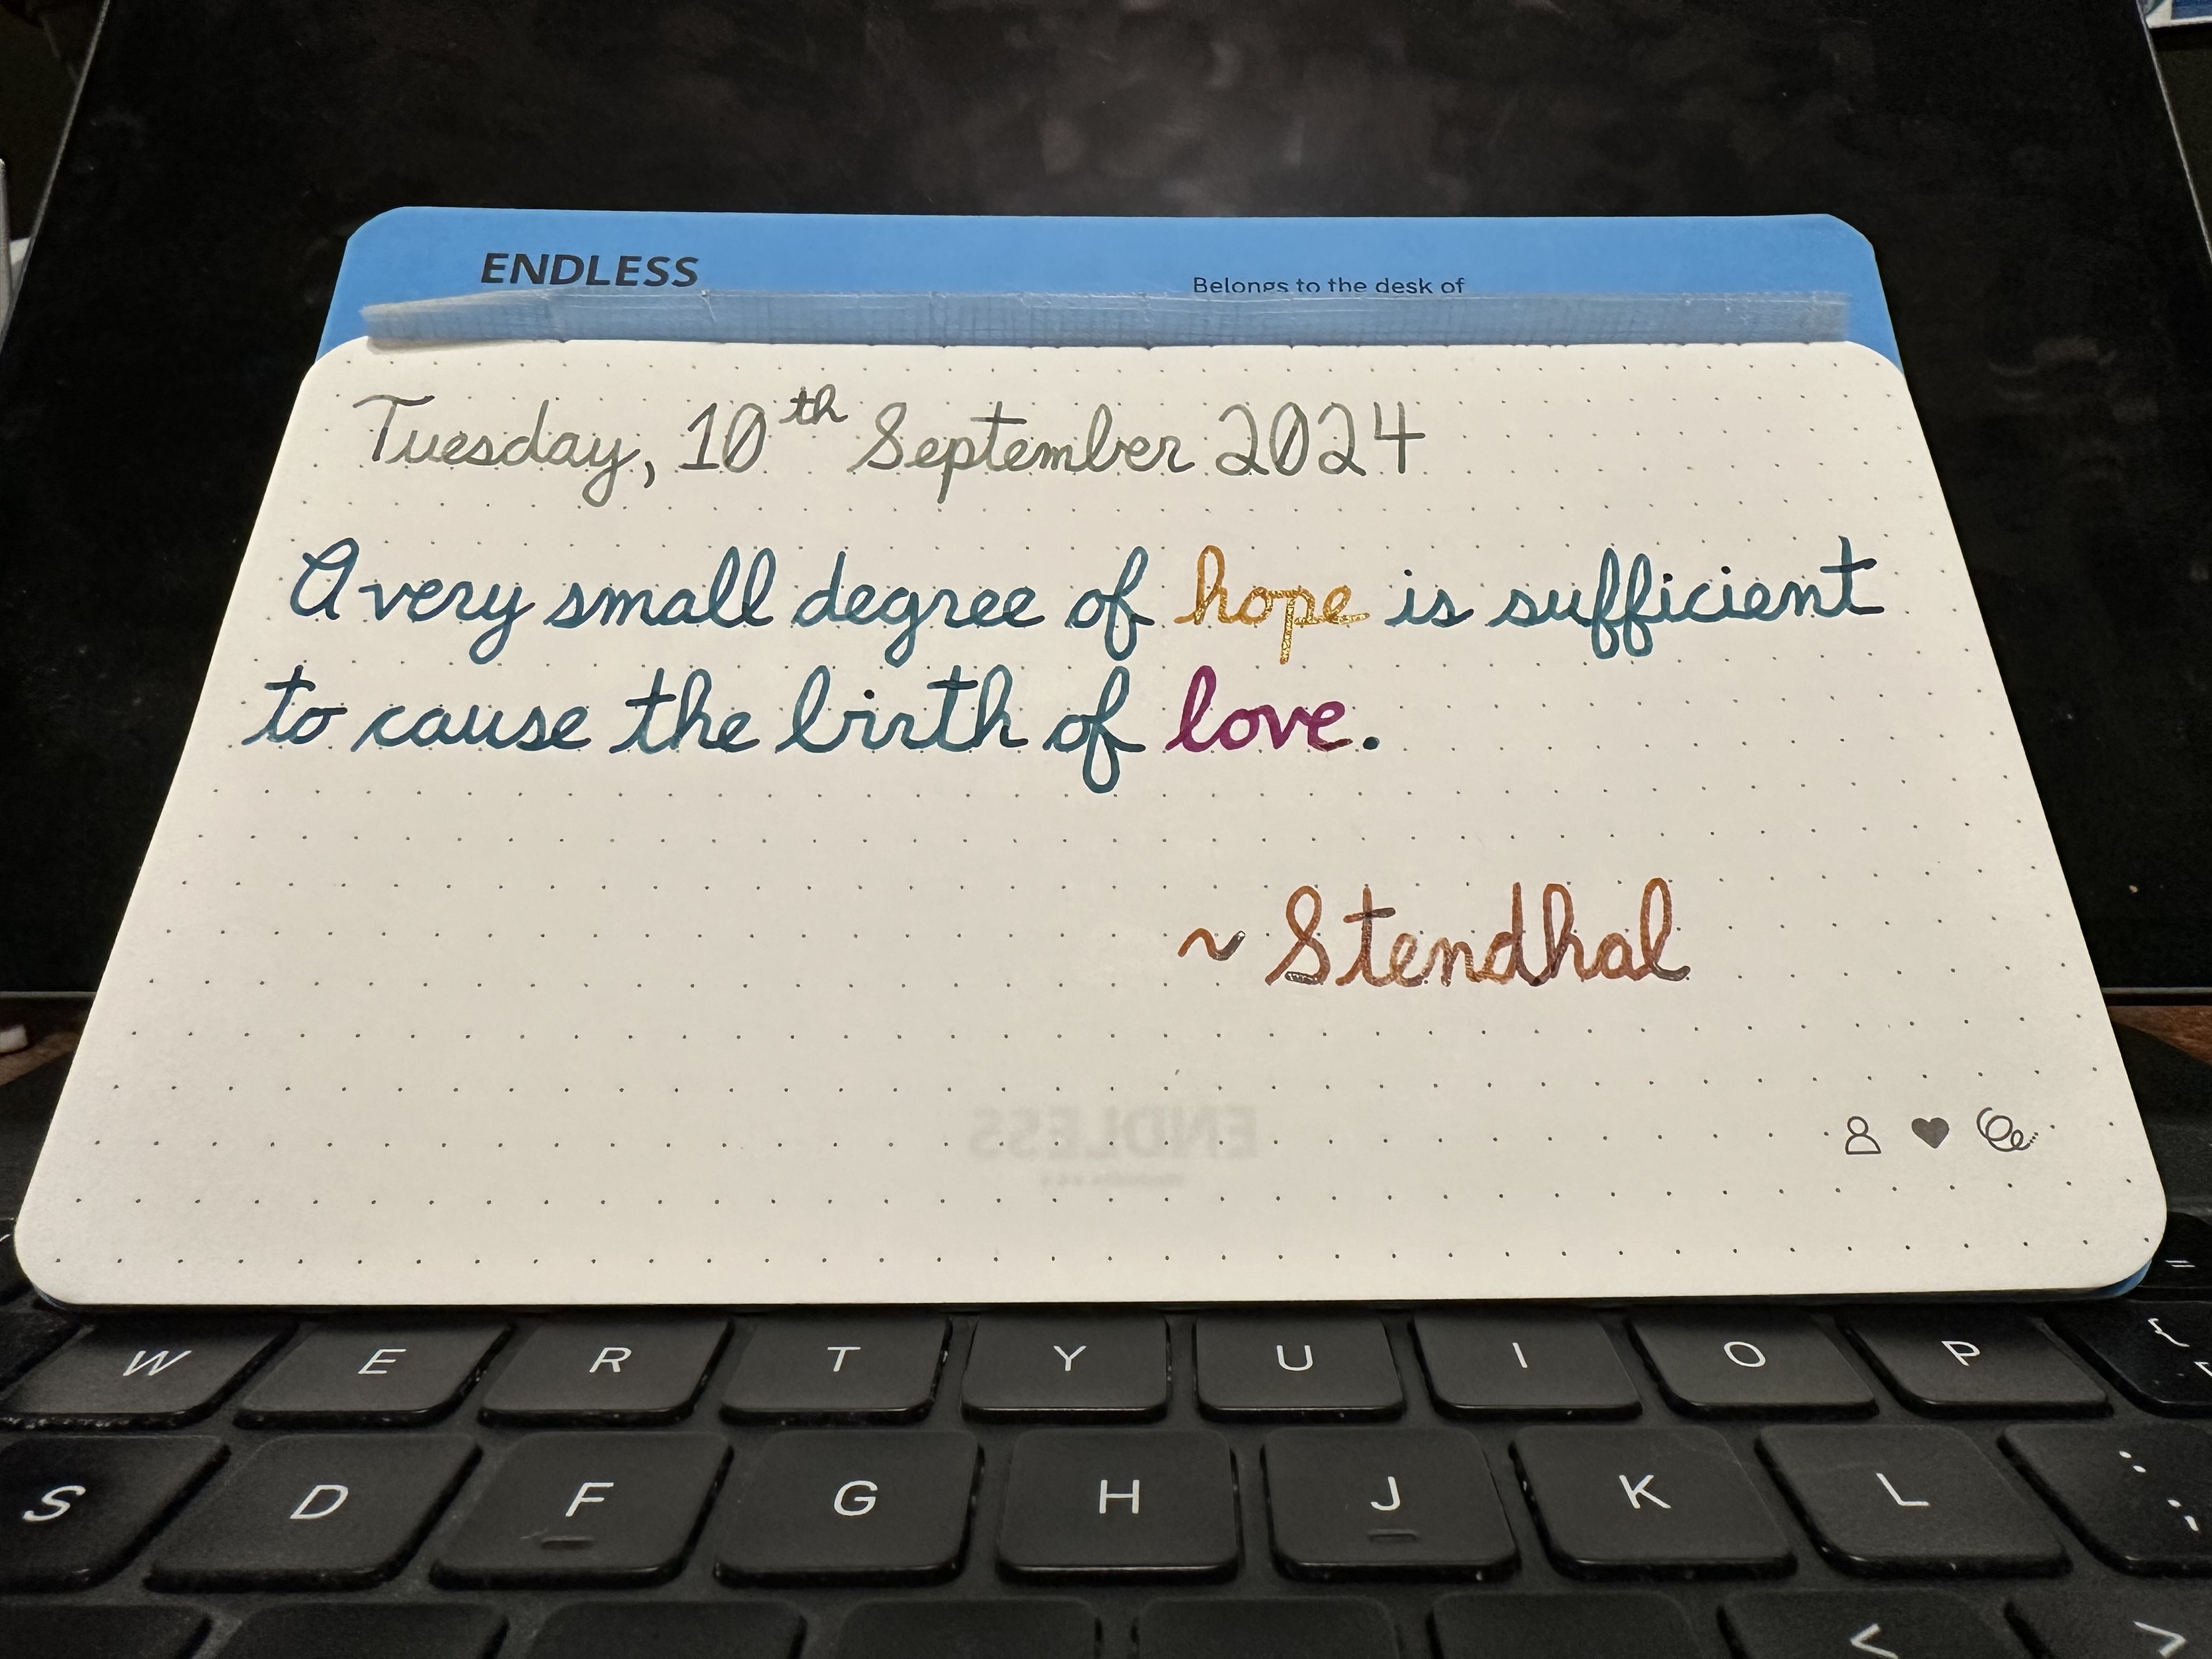 ENDLESS
Belongs to the desk of
Tuesday, 10th September 2024
A very small degree of hope is sufficient
to cause the birth of love.
~ Stendhal
ENDLESS
W E R T Y U I O P {
S D F G H J K L : ;
< >
=